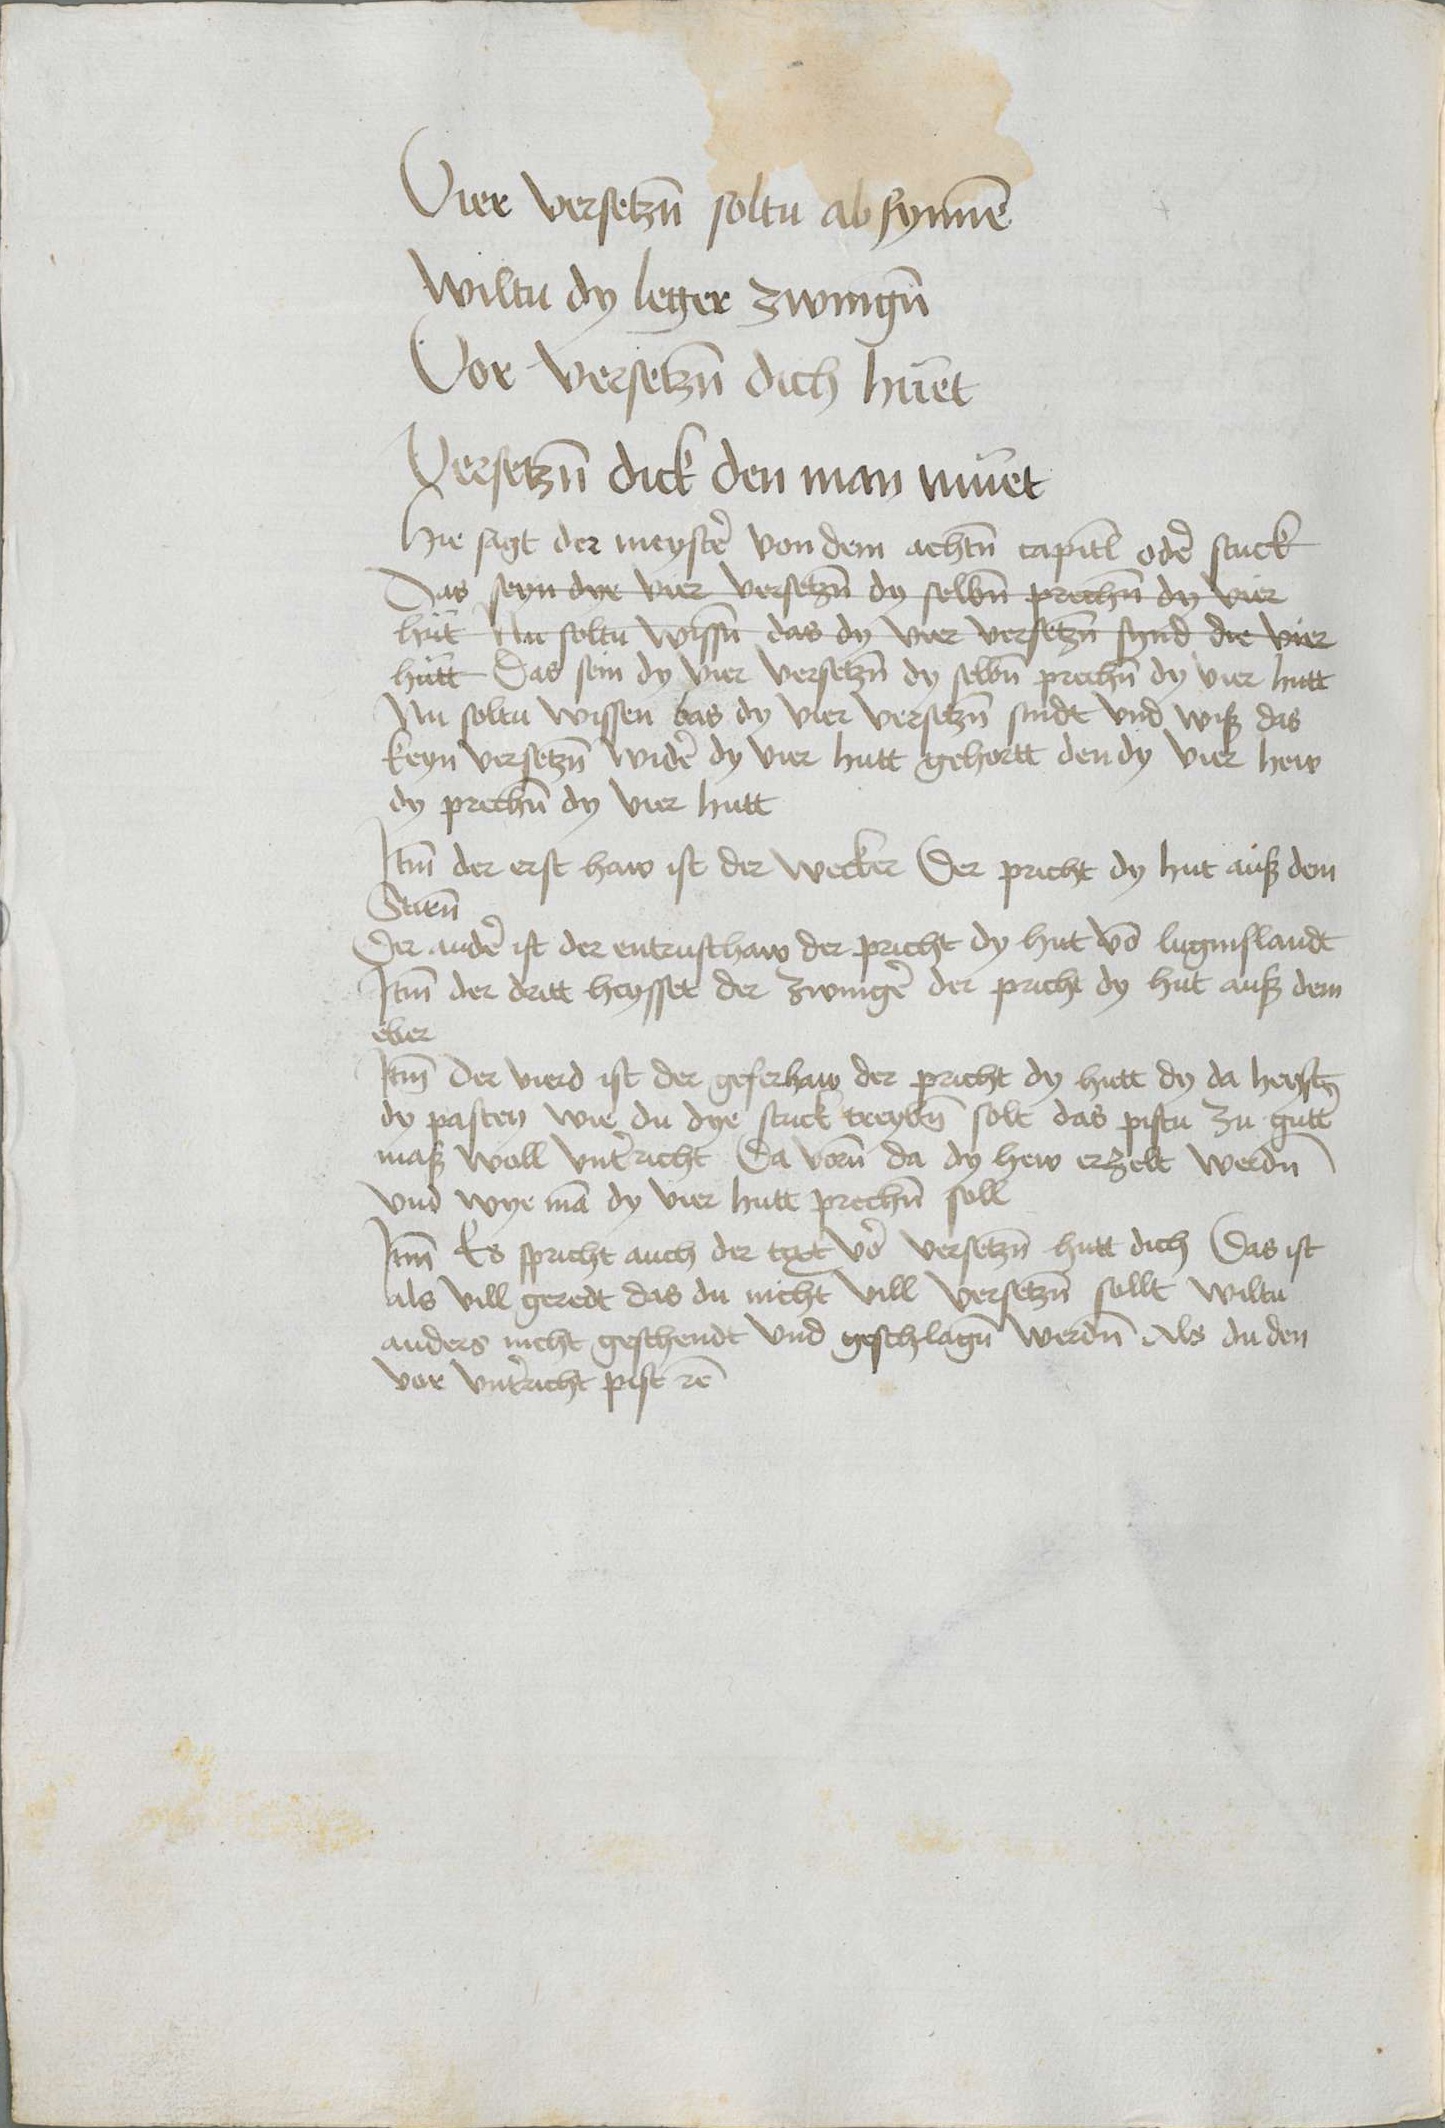 Vier versetzn̄ soltu ab synnē
Wiltu dy leger zwingn̄
Vor versetzn̄ dich hüet
Versetzn̄ dick den man müet
Hie sagt der meyster̄ von dem achtn̄ capitl oder̄ stuck
Das seyn dye vier versetzn̄ dy selbn̄ prechn̄ dy vier
hüt Nu soltu wissn̄ das dy vier versetzn̄ synd die vier
hütt Das sein dy vier versetzn̄ dy selbn̄ prechn̄ dy vier hutt
Nu soltu wissen das dy vier versetzn̄ sindt vnd wiß das
keyn versetzn̄ wider̄ dy vier hutt gehortt den dy vier hew
dy prechn̄ dy vier hutt
Itm̄ der erst haw ist der wecker Der pricht dy hut auß dem
Stirn̄
Der ander̄ ist der entrusthaw der pricht dy hut vō luginslandt
Itm̄ der dritt heysset der zwinger̄ der pricht dy hüt auß dem
eber
Itm̄ Der vierd ist der geferhaw der pricht dy hutt dy da heystz
dy pasteÿ wie du dye stuck treybn̄ solt das pistu zu gutter̄
maß woll vnterricht Da vorn̄ da dy hew erzelt werdn̄
vnd wye mā dy vier hutt prechn̄ soll
Itm̄ Es spricht auch der text vō versetzn̄ hutt dich Das ist
als vill geredt das du nicht vill versetzn̄ sollt wiltu
anders nicht geschendt vnd geschlagn̄ werdn̄ Als du den
vor vnterricht pist rc̄